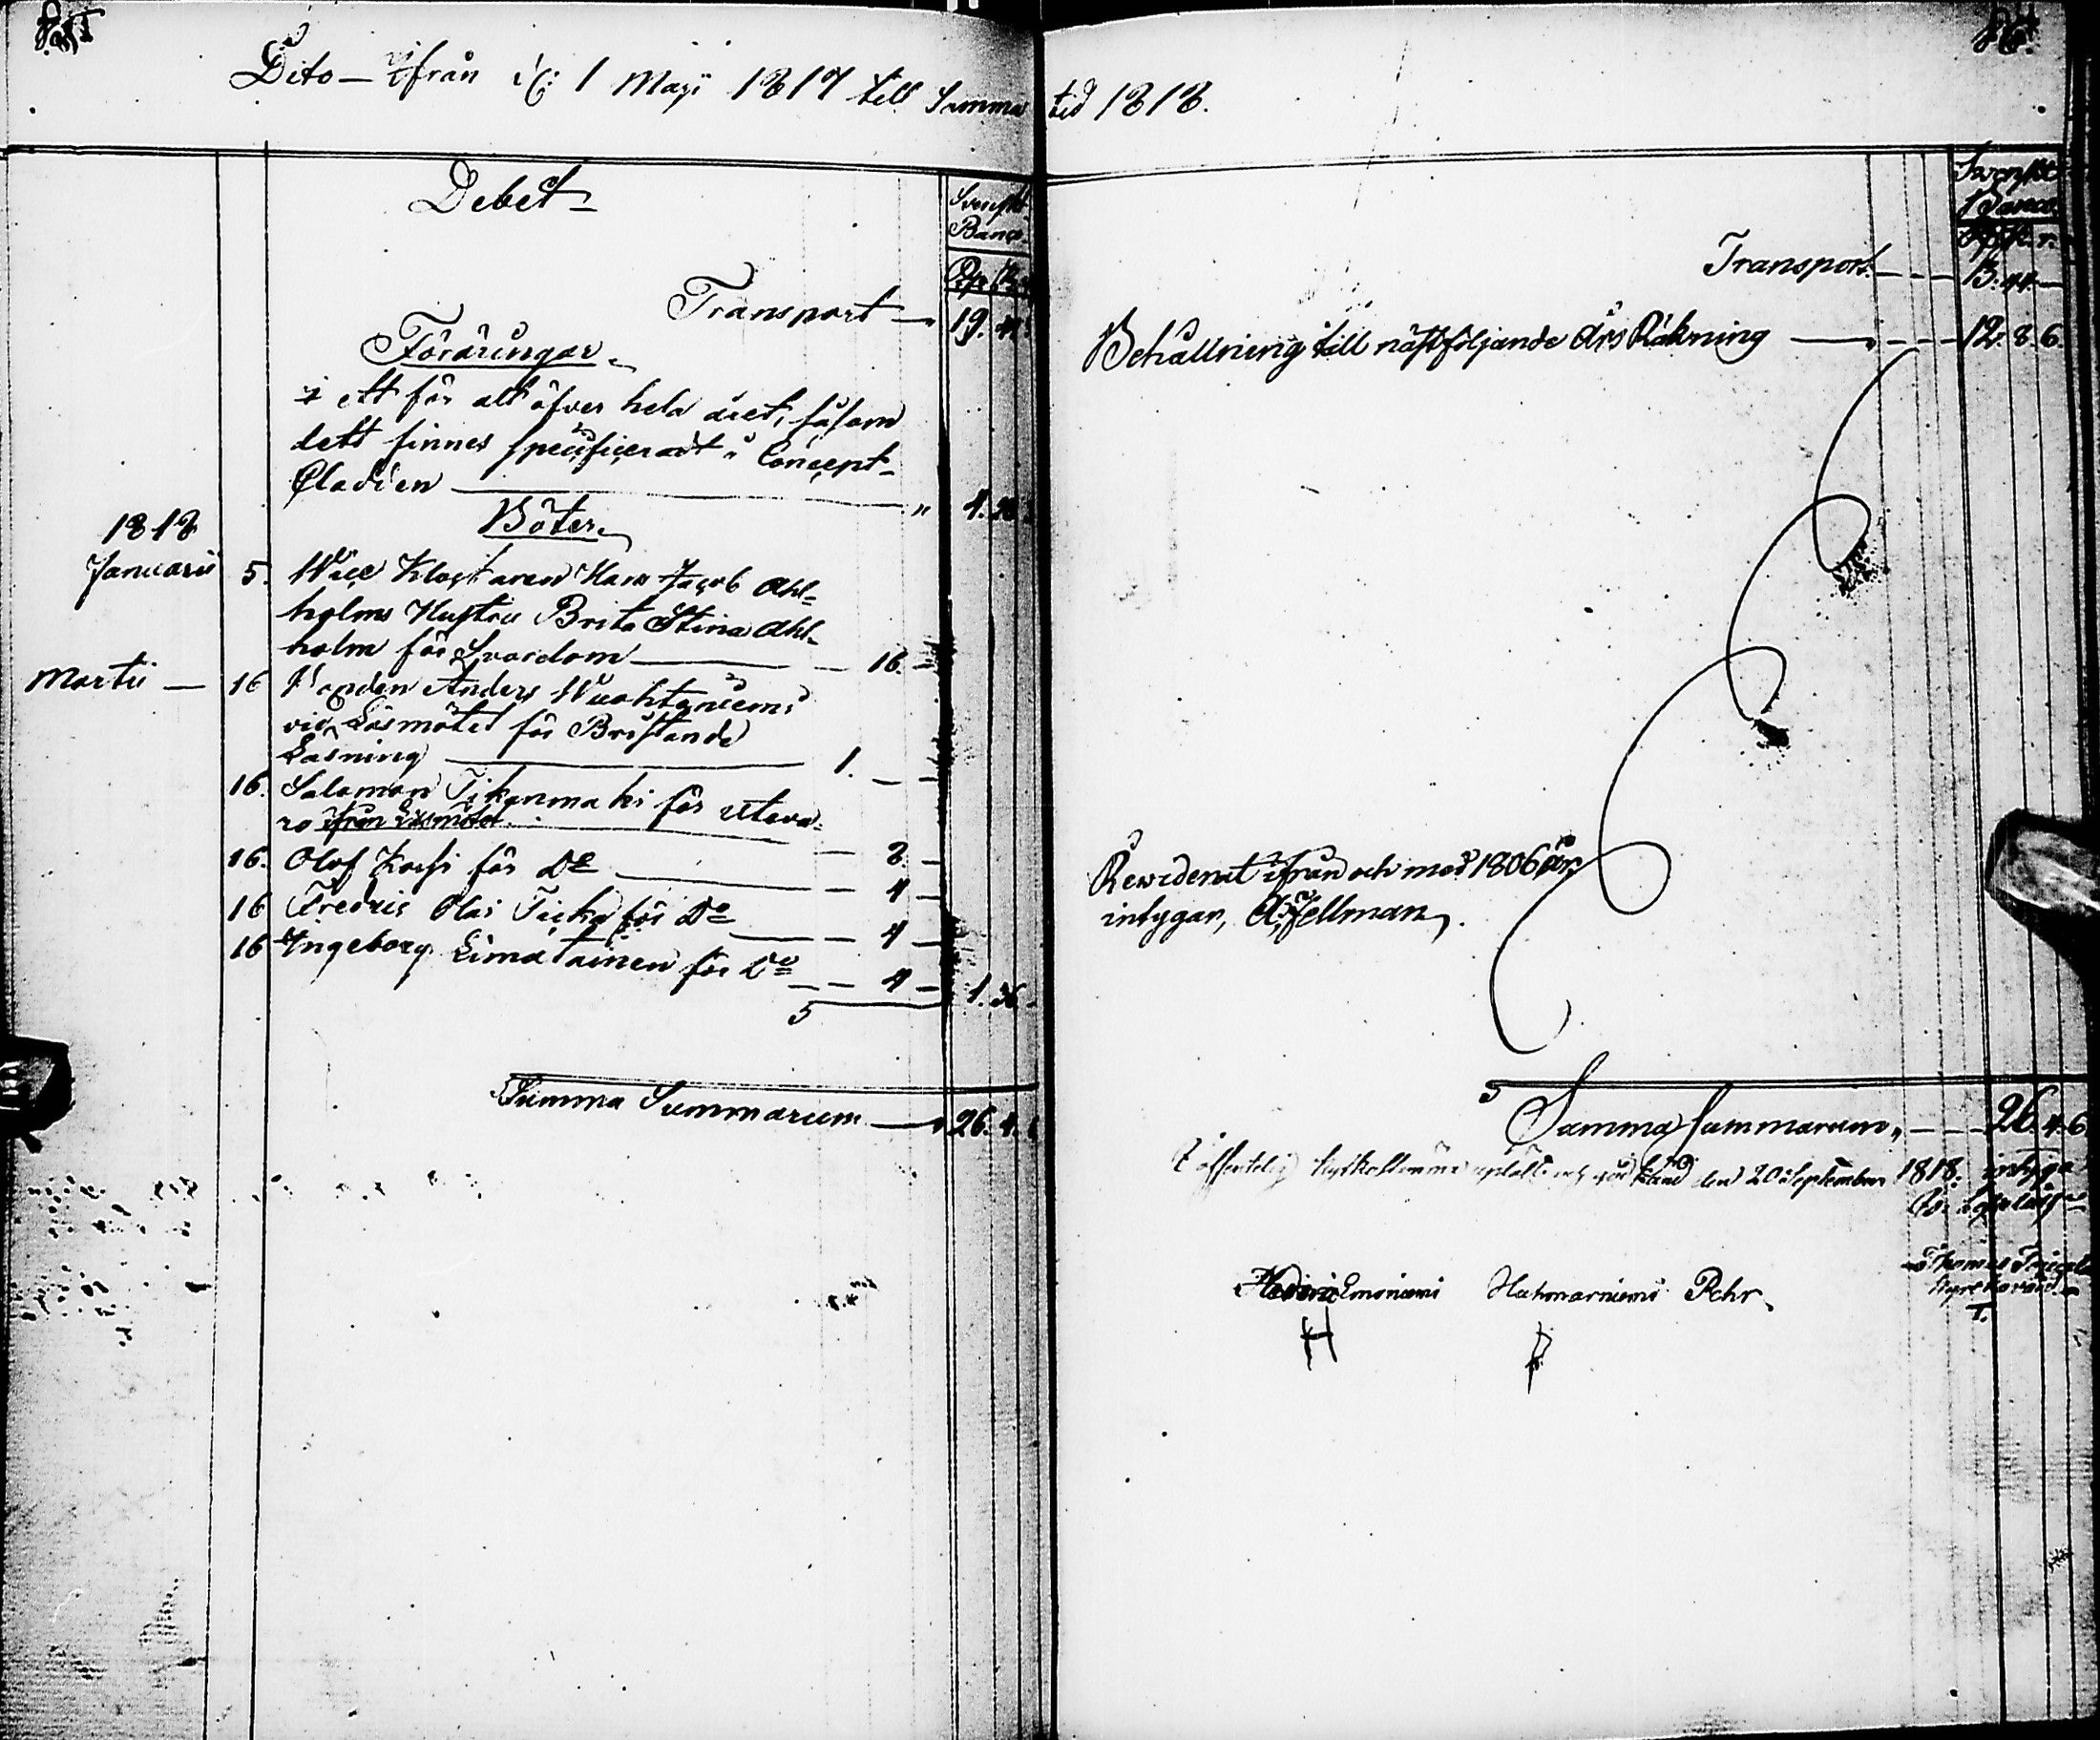 Dito — ifrån d. 1 Maji 1817 till Samma tid 1818.
Debet
Svenskt
Banco
Transport — 19. 41
Föräringar
i ett för alt öfver hela året, såsom
dett finnes specificeradt i Concept-
Bladden — " 4. 28
Böter
1818
Januarii 5. Vice Klockaren Hans Jacob Ahl=
holms Hustru Brita Stina Ahl-
holm för Svordom — 16. —
Martii — 16 Bonden Anders Wuohtoniemi
vid Läsmötet för Bristande
Läsning — 1. — —
16. Salomon Tikanmaki för uteva-
ro ifrån Läsmötet — 8 —
16. Olof Karhi för Do — 4 —
16 Fredric Olai Ticka för Do — 4 —
16 Ingeborg Limatainen för Do — 4 — 1. 36
Summa Summarum — 26. 4.
Svenskt
Banco
Transport — 13. 44 —
Behållning till nästföljande års Räkning — 12. 8. 6.
Reviderat ifrån och med 1806 års
intygar, Es. Fellman.
Summa Summarum, — 26. 4. 6
I offentelig Kyrkostämma uplåst och gord känd den 20 September 1818. intyga
Emoniemi Hahmarniemi Pehr
Thomas
Kyrkovärd
H P T.